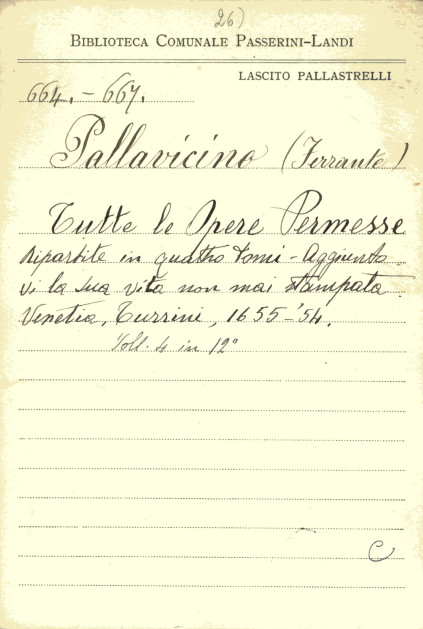 26)
BIBLIOTECA COMUNALE PASSERINI-LANDI
LASCITO PALLASTRELLI
664. - 667.
Pallavicino (Ferrante)
Tutte le Opere Permesse
Ripartite in quattro tomi - Aggiunto
vi la sua vita non mai stampata.
Venetia, Turrini, 1655-'54.
Voll. 4 in 12°
C